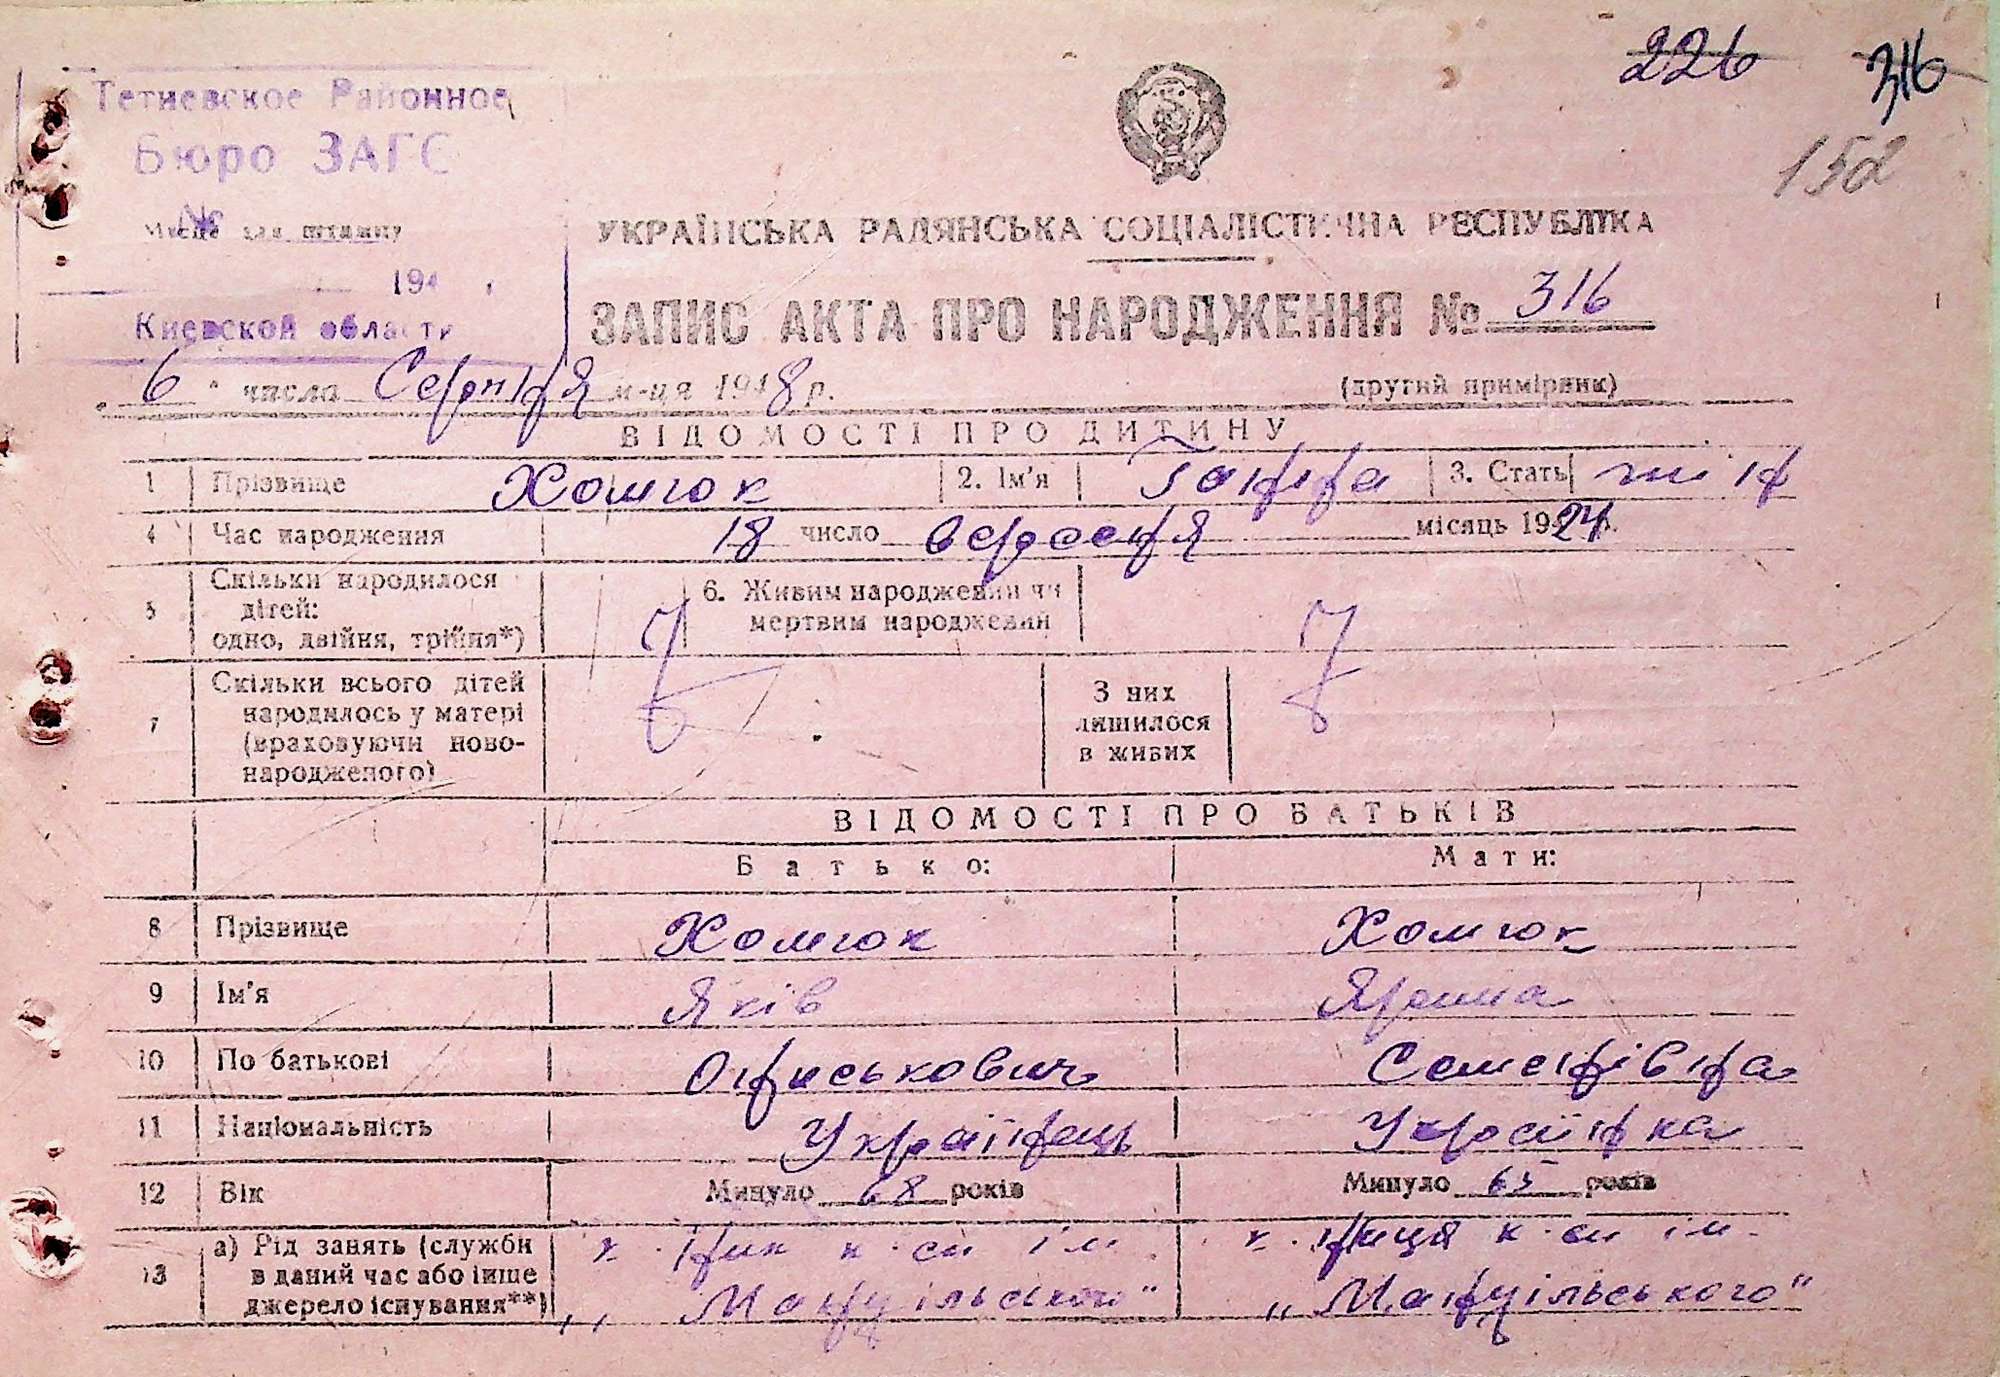 226 316
152
Тетиевское Районное
Бюро ЗАГС
№
Місце для штампу
194 .
Киевской области
УКРАЇНСЬКА РАДЯНСЬКА СОЦІАЛІСТИЧНА РЕСПУБЛІКА
ЗАПИС АКТА ПРО НАРОДЖЕННЯ № 316
6 " числа Серпня м-ця 1948 р. (другий примірник)
ВІДОМОСТІ ПРО ДИТИНУ
1 Прізвище Хомюк 2. Ім'я Ганна 3. Стать жін
4 Час народження 18 число вересня місяць 1924 р.
5 Скільки народилося дітей: одно, двійня, трійня*) 6. Живим народжений чи мертвим народжений
7 Скільки всього дітей народилось у матері (враховуючи ново-народженого) З них лишилося в живих
ВІДОМОСТІ ПРО БАТЬКІВ
Батько: Мати:
8 Прізвище Хомюк Хомюк
9 Ім'я Яків Ярина
10 По батькові Ониськович Семенівна
11 Національність Українець Українка
12 Вік Минуло 68 років Минуло 65 років
13 а) Рід занять (служби в даний час або інше джерело існування**) к-ник к-си ім. „Мануїльського" к-ниця к-си ім. „Мануїльського"